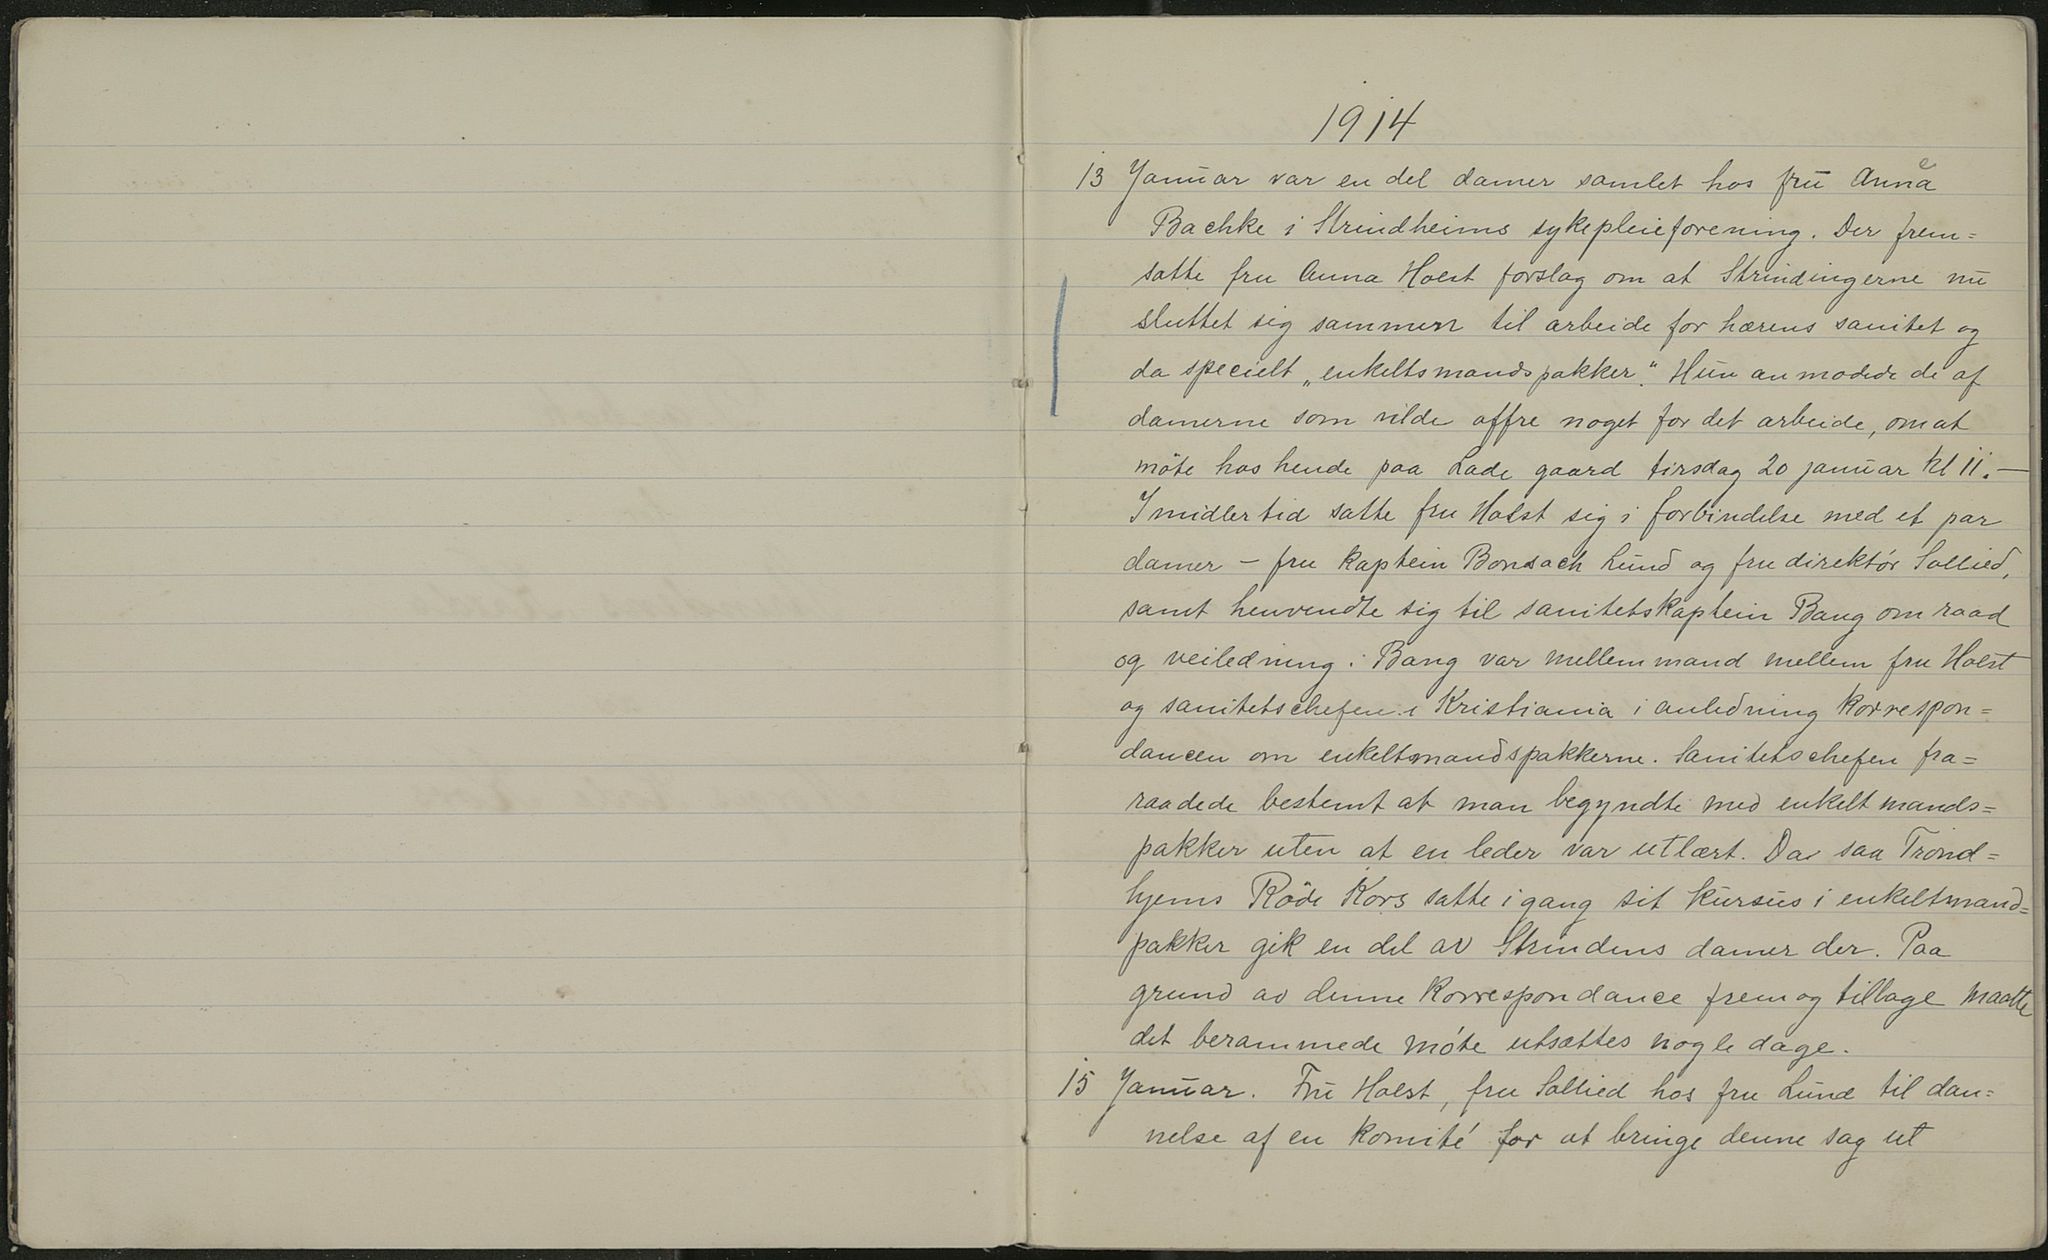 1914
13 Januar var en del damer samlet hos fru Annae
Bachke i Strindheims sykepleieforening. Der frem=
satte fru Anna Holst forslag om at Strindingerne nu
sluttet sig sammen til arbeide for hærens sanitet og
da specielt „enkeltsmandspakker." Hun anmodede de af
damerne som vilde offre noget for det arbeide, om at
möte hos hende paa Lade gaard tirsdag 20 januar kl 11. —
Imidlertid satte fru Holst sig i forbindelse med et par
damer – fru kaptein Bonsach Lund og fru direktör Sollied,
samt henvendte sig til sanitetskaptein Bang om raad
og veiledning. Bang var mellemmand mellem fru Holst
og sanitetschefen i Kristiania i anledning korrespon=
dancen om enkeltsmandspakkerne. Sanitetschefen fra=
raadede bestemt at man begyndte med enkeltmands=
pakker uten at en leder var utlært. Da saa Trond=
hjems Röde Kors satte igang sit kursus i enkeltmand=
pakker gik en del av Strindens damer der. Paa
grund av denne korrespondance frem og tilbage maatte
det berammede möte utsættes nogle dage.
15 Januar. Fru Holst, fru Sollied hos fru Lund til dan=
nelse af en komité for at bringe denne sag ut